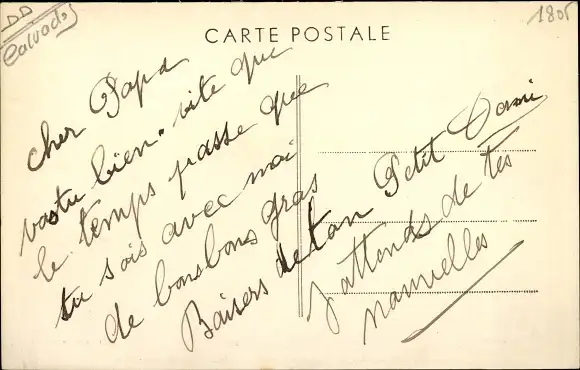 DD
Calvados
1805
CARTE POSTALE
cher Papa
vastu bien. vite que
le temps passe que
tu sois avec moi
de bonsbons gras
Baisers de ton Petit Dani
J'attends de tes
nouvelles